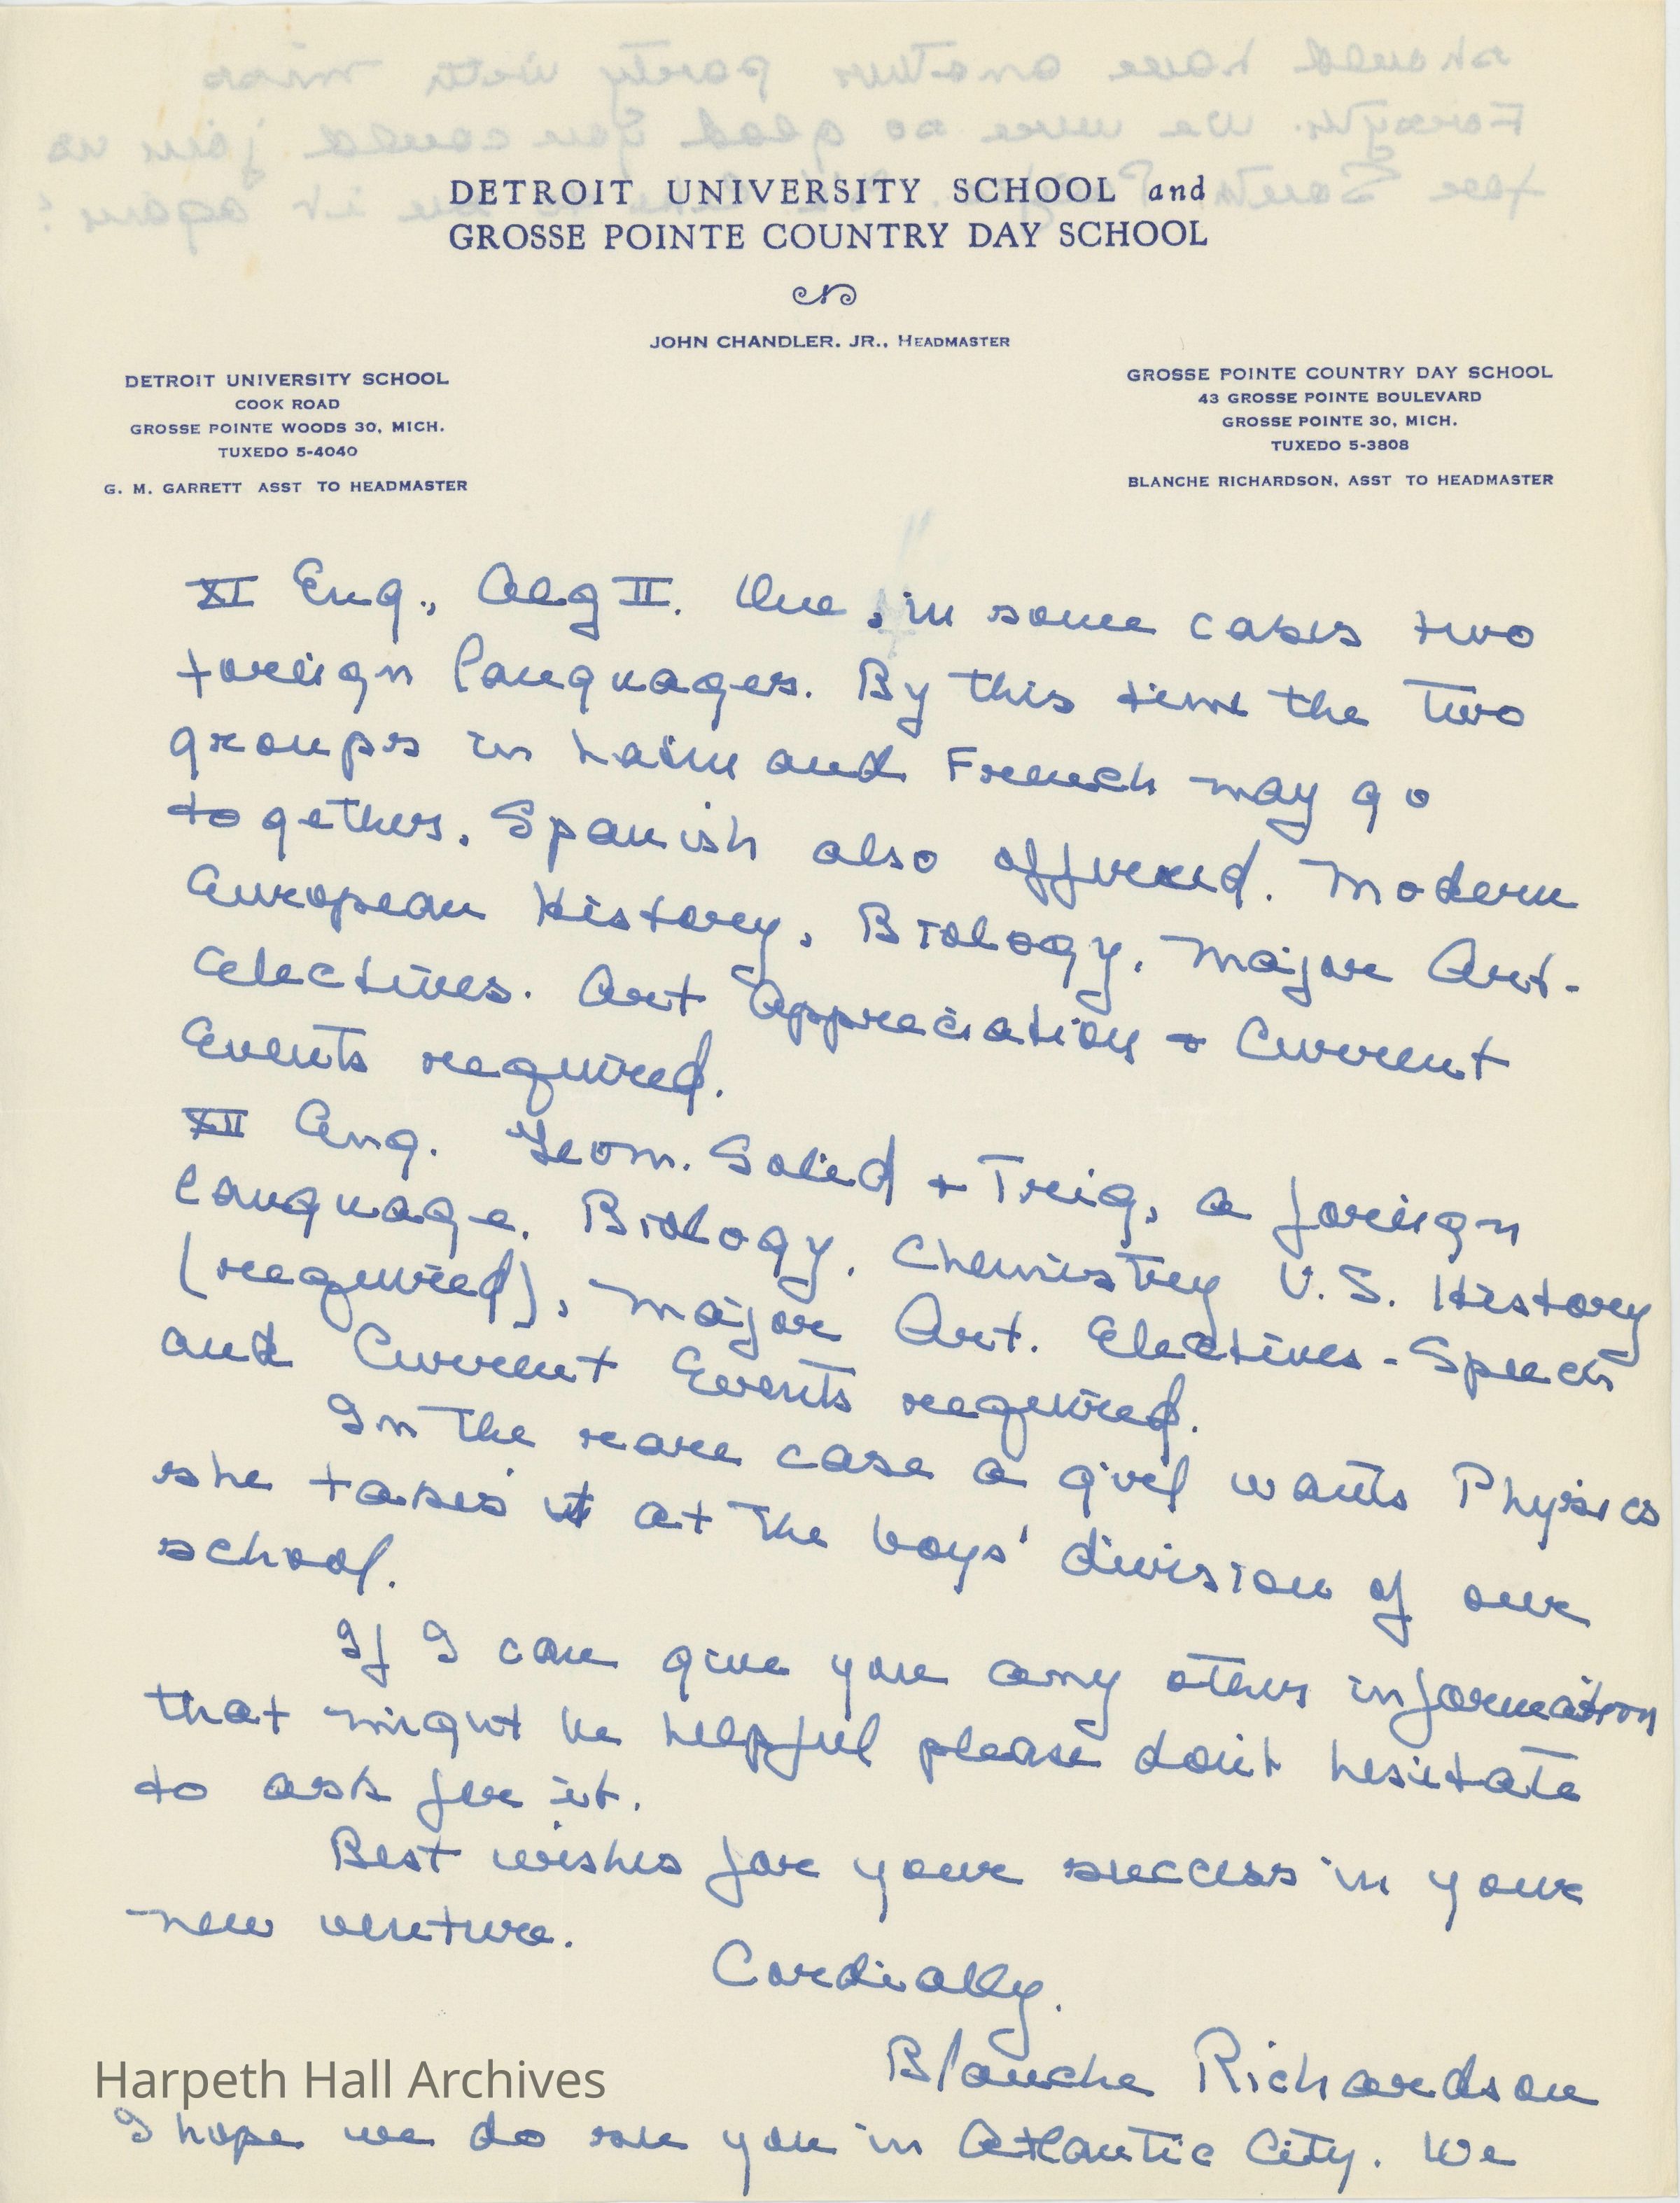 DETROIT UNIVERSITY SCHOOL and
GROSSE POINTE COUNTRY DAY SCHOOL
JOHN CHANDLER, JR., HEADMASTER
DETROIT UNIVERSITY SCHOOL
COOK ROAD
GROSSE POINTE WOODS 30, MICH.
TUXEDO 5-4040
G. M. GARRETT ASST TO HEADMASTER
GROSSE POINTE COUNTRY DAY SCHOOL
43 GROSSE POINTE BOULEVARD
GROSSE POINTE 30, MICH.
TUXEDO 5-3808
BLANCHE RICHARDSON, ASST TO HEADMASTER
XI Eng., Alg II. One, in some cases two
foreign languages. By this time the two
groups in Latin and French may go
together. Spanish also offered. Modern
European History, Biology, Major Art-
Electives. Art Appreciation + Current
Events required.
XII Eng. Geom. Solid + Trig, a foreign
language, Biology, Chemistry U.S. History
(required), Major Art. Electives - Speech
and Current Events required.
In the rare case a girl wants Physics
she takes it at the boys' division of our
school.
If I can give you any other information
that might be helpful please don't hesitate
to ask for it.
Best wishes for your success in your
new venture.
Cordially,
Blanche Richardson
Harpeth Hall Archives
I hope we do see you in Atlantic City. We